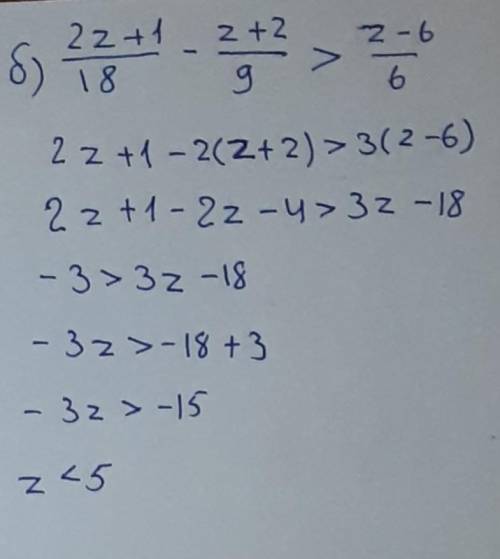 б) (2z+1)/18 - (z+2)/9 > (z-6)/6
2z+1-2(z+2)>3(z-6)
2z+1-2z-4>3z-18
-3>3z-18
-3z>-18+3
-3z>-15
z<5